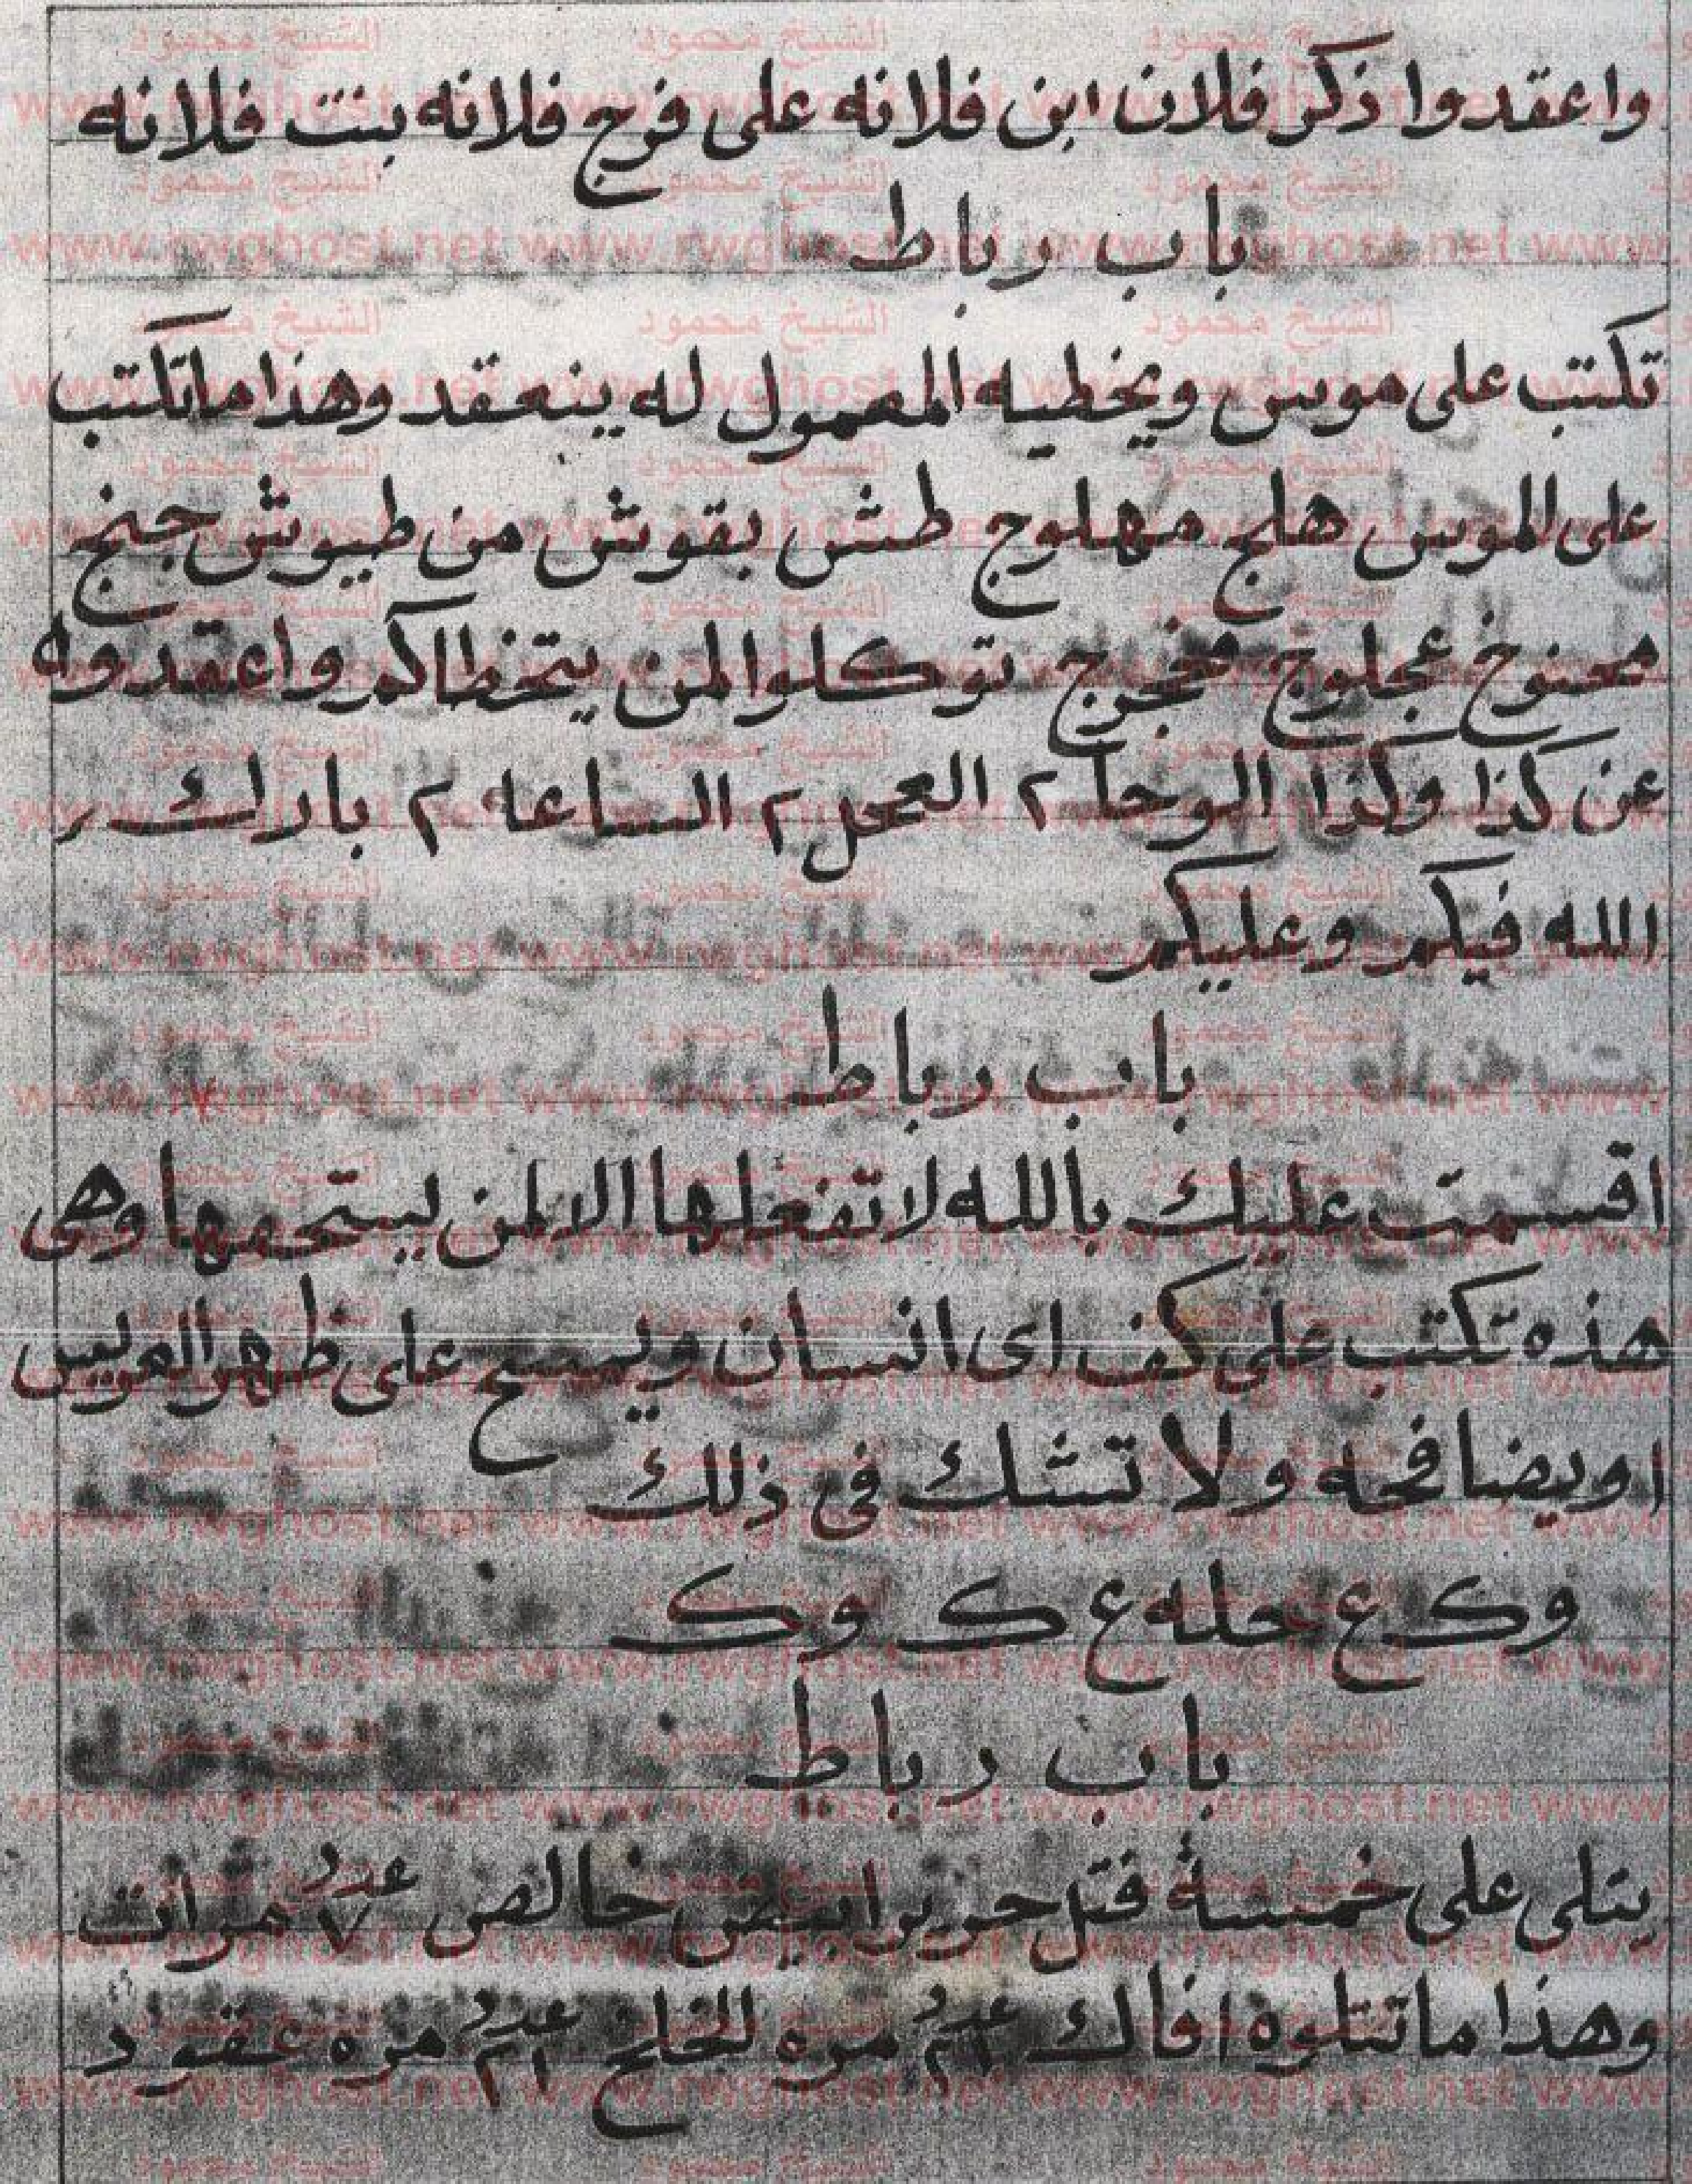 واعقدوا ذكر فلان ابن فلانه على فرج فلانه بنت فلانه
باب رباط
تكتب على موس ويخطيه المعمول له ينعقد وهذا ماتكتب
على الموس هلج مهلوج طش بقوش من طيوش جنج
توكلوا لمن يتخطاكم واعقدوه
عن كذا وكذا الوحا ٢ العجل ٢ الساعه ٢ بارك
الله فيكم وعليكم
باب رباط
اقسمت عليك بالله لا تفعلها الا لمن يستحقها وهى
هذه تكتب على كف اى انسان ويمسح على ظهر العريس
او يصافحه ولا تشك فى ذلك
وك ع حله ع ك وك
باب رباط
يتلى على خمسة فتل حرير ابيض خالص عدد ٧ مرات
وهذا ما تتلوه افاك عدد ٢١ مره للخلخ عدد ٢١ مره عقود
الشيخ محمود
www.rwghost.net